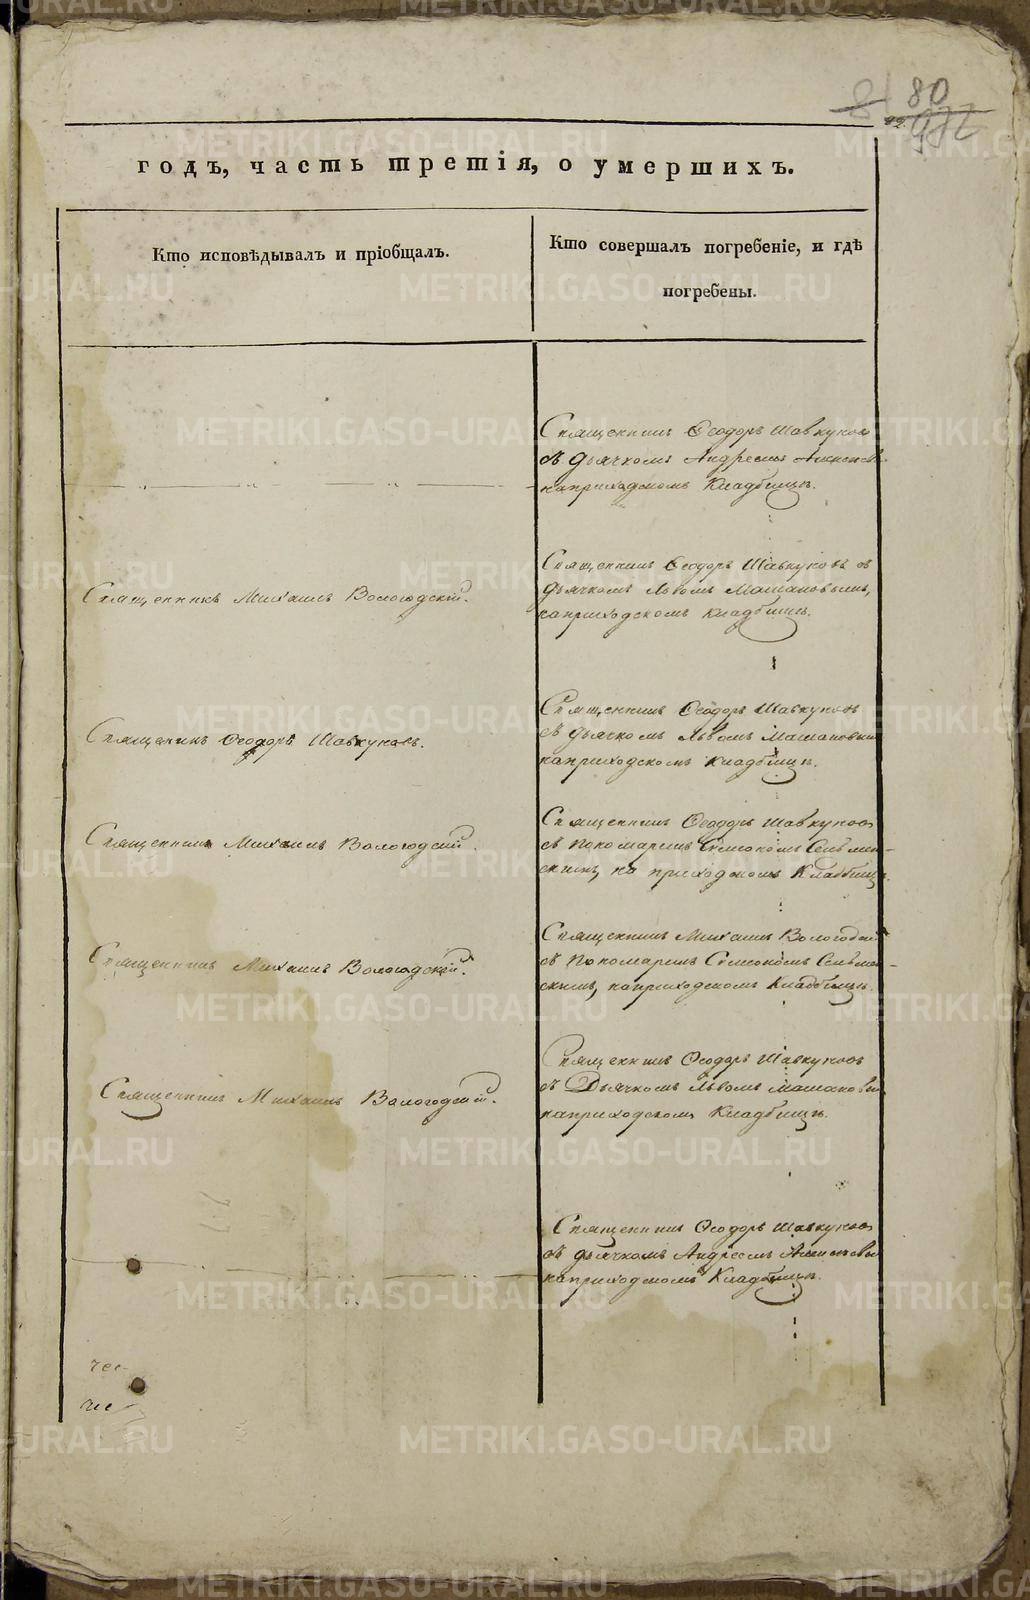 80
годъ, часть третія, о умершихъ.
Кто исповѣдывалъ и пріобщалъ.
Кто совершалъ погребеніе, и гдѣ
погребены.
Священникъ Ѳеодоръ Шавкуновъ
съ дьячкомъ Андреемъ
наприходскомъ Кладбищѣ.
Священникъ Михаилъ Вологодскій.
Священникъ Ѳеодоръ Шавкуновъ съ
дьячкомъ Львомъ Машановымъ,
наприходскомъ кладбищѣ.
Священникъ Ѳеодоръ Шавкуновъ.
Священникъ Ѳеодоръ Шавкуновъ
съ дьячкомъ Львомъ Машановым
наприходскомъ кладбищѣ.
Священникъ Михаилъ Вологодскій.
Священникъ Ѳеодоръ Шавкуновъ
съ Пономаремъ Симеономъ
на приходскомъ Кладбищѣ.
Священникъ Михаилъ Вологодскій.
Священникъ Михаилъ Вологодскій
съ Пономаремъ Симеономъ
наприходскомъ Кладбищѣ.
Священникъ Михаилъ Вологодскій.
Священникъ Ѳеодоръ Шавкуновъ
съ Дьячкомъ Львомъ Машановым
наприходскомъ Кладбищѣ.
Священникъ Ѳеодоръ Шавкуновъ
съ дьячкомъ Андреемъ
наприходскомъ Кладбищѣ.
METRIKI.GASO-URAL.RU